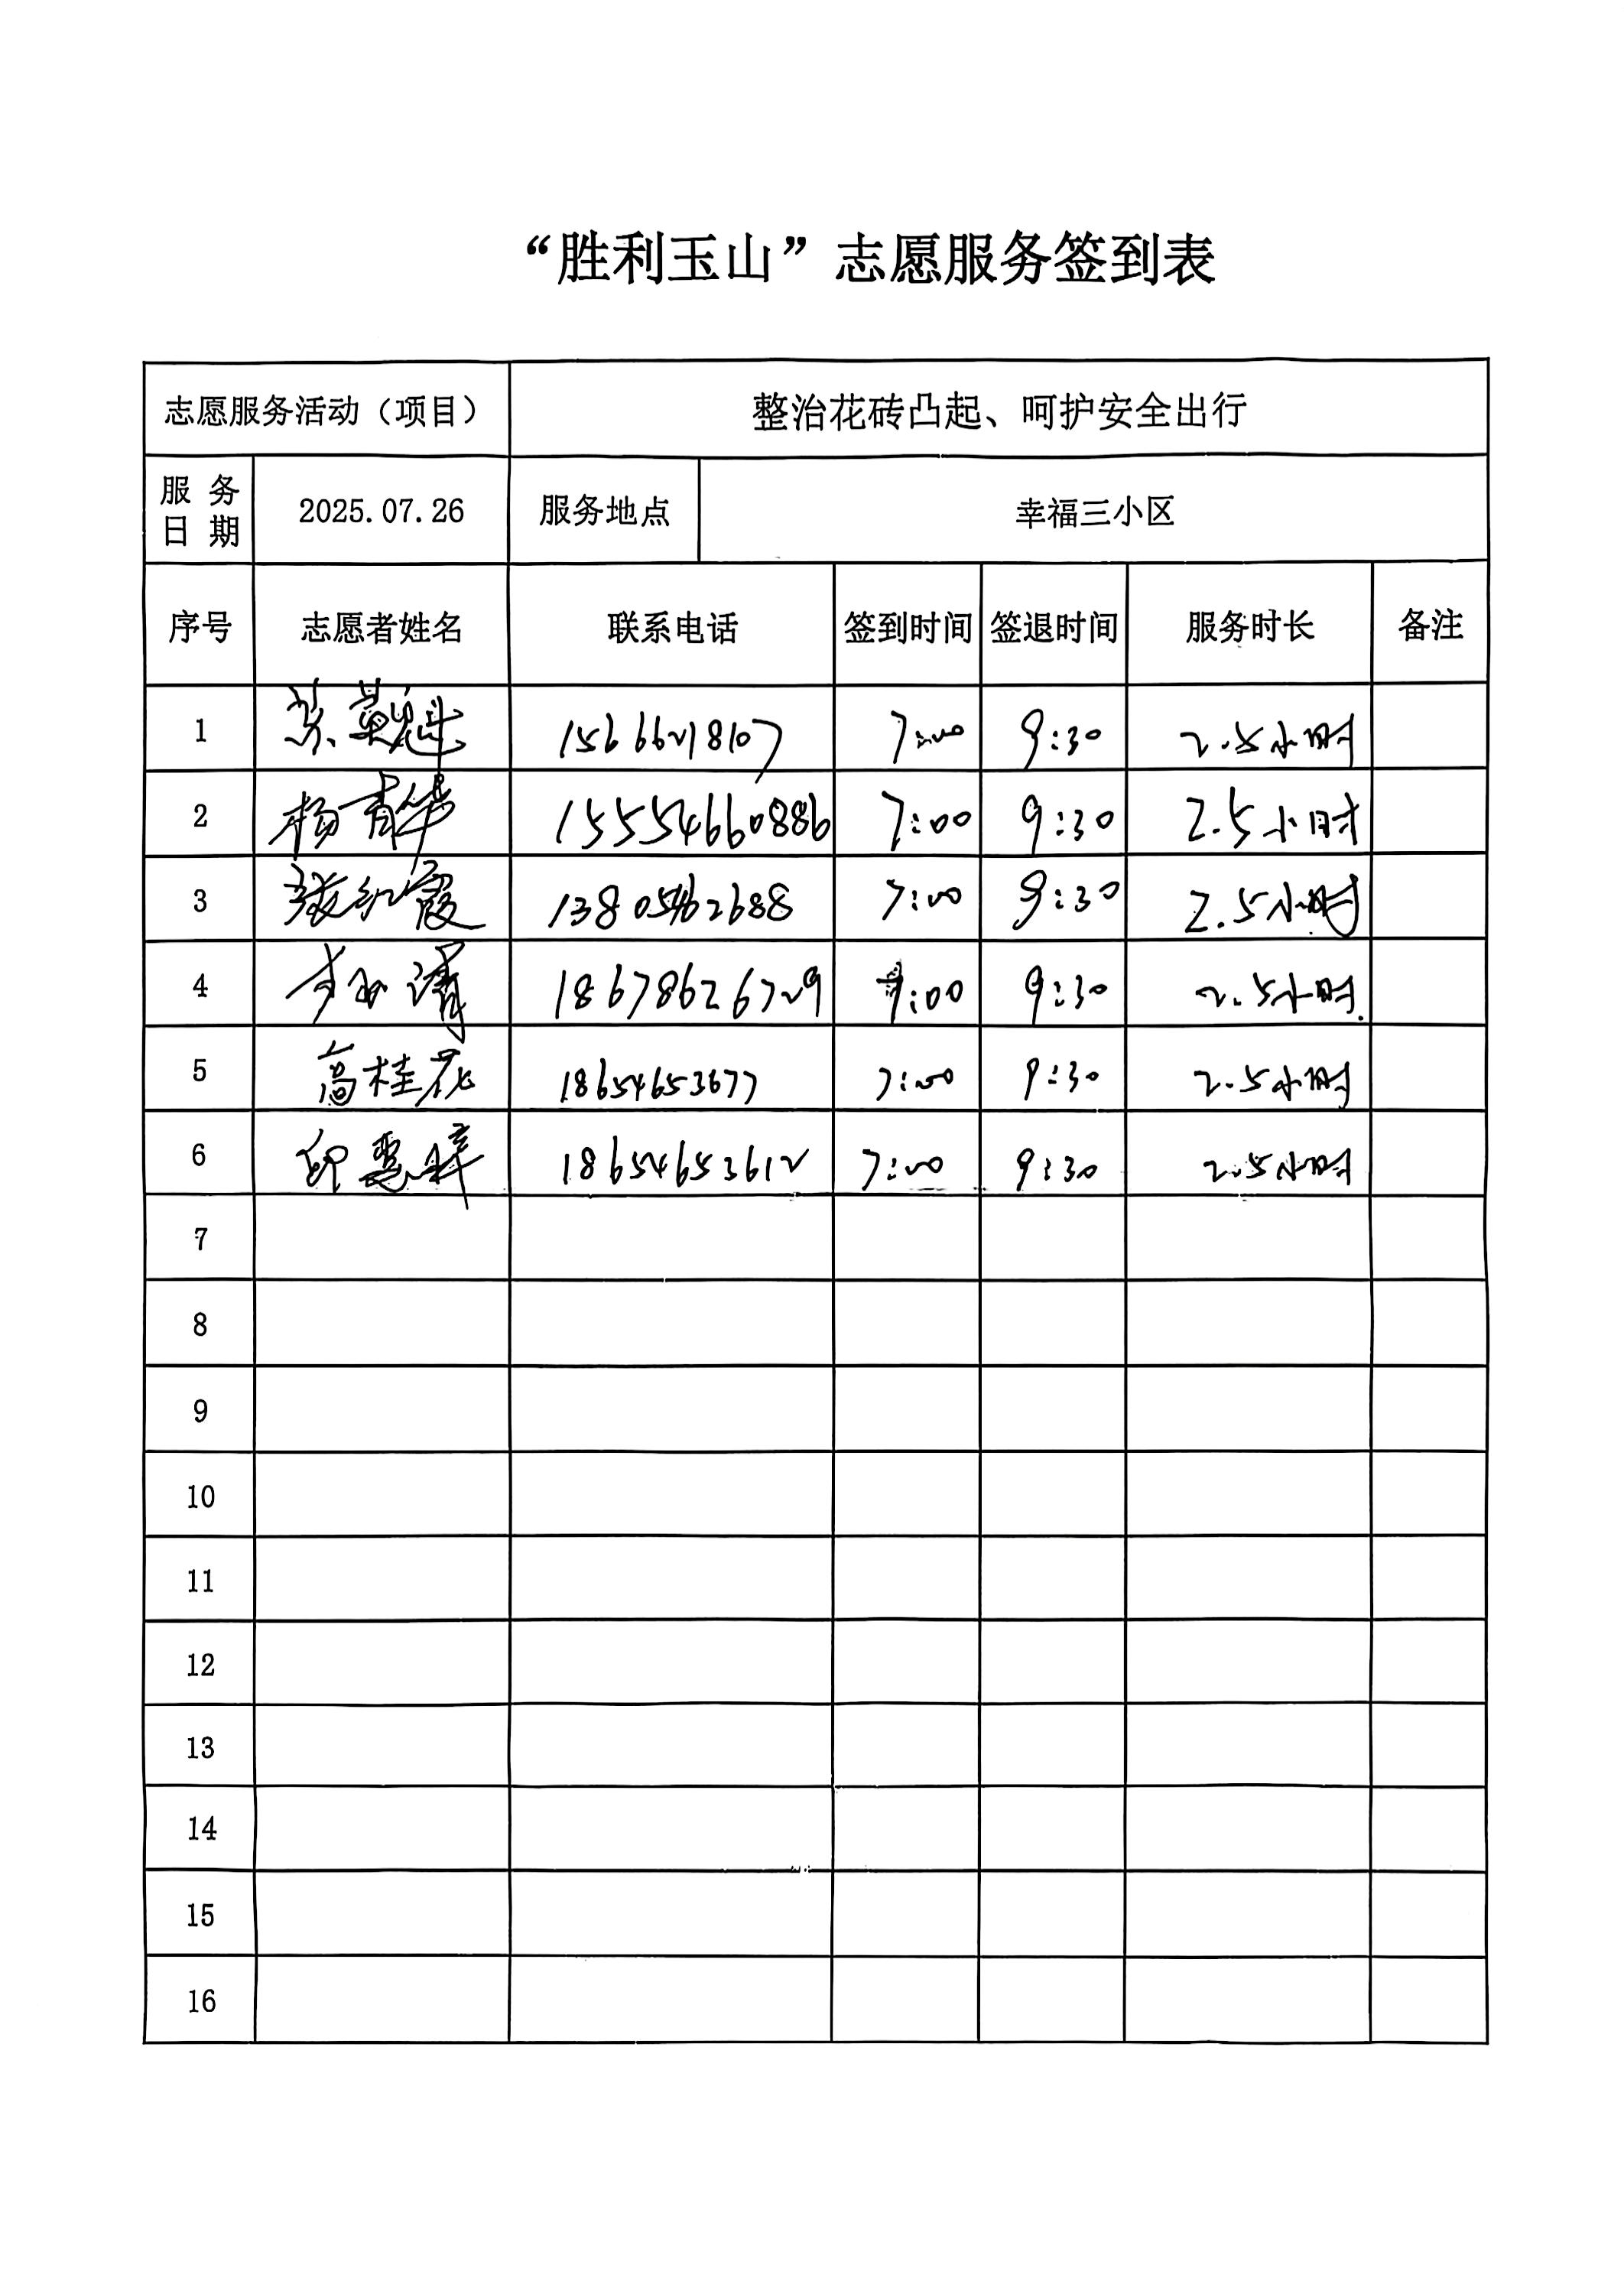 “胜利玉山”志愿服务签到表
志愿服务活动（项目） 整治花砖凸起、呵护安全出行
服务日期 2025.07.26 服务地点 幸福三小区
序号 志愿者姓名 联系电话 签到时间 签退时间 服务时长 备注
1 苏英魁 15666218107 7:00 9:30 2.5小时
2 杨青华 15554660886 7:00 9:30 2.5小时
3 红霞 13805462688 7:00 9:30 2.5小时
4 18678626729 7:00 9:30 2.5小时.
5 高桂花 18654653677 7:00 9:30 2.5小时
6 慧梓 18654653612 7:00 9:30 2.5小时
7
8
9
10
11
12
13
14
15
16